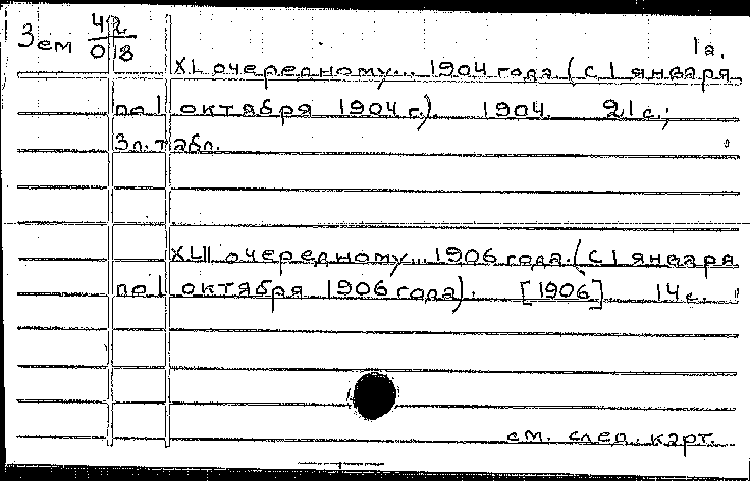 Зем 42
0 18
1а.
XL очередному... 1904 года (с 1 января
по 1 октября 1904 г.). 1904. 21 с.;
3 л. табл.
XLII очередному... 1906 года. (с 1 января
по 1 октября 1906 года). [1906] 14 с.
см. след. карт.